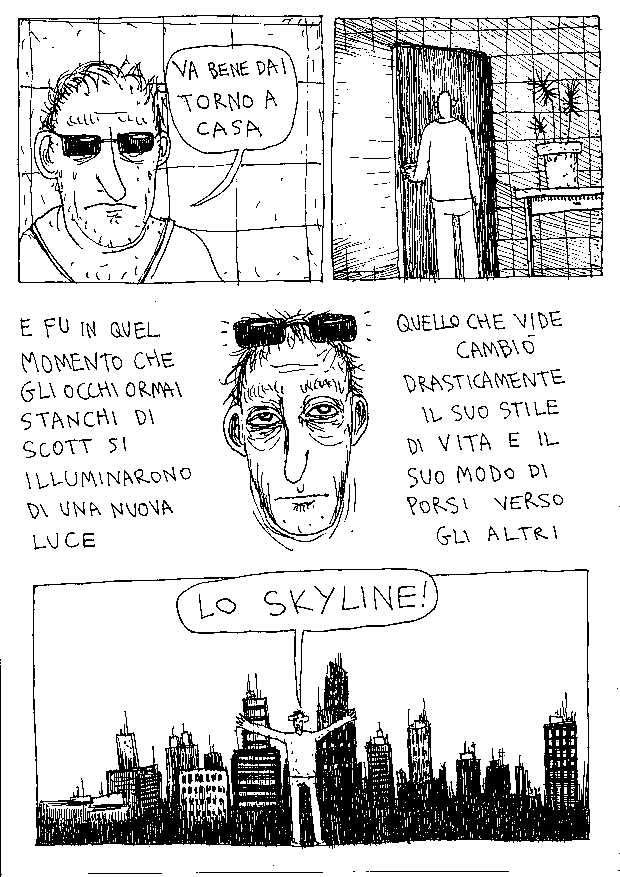 VA BENE DAI
TORNO A
CASA
E FU IN QUEL
MOMENTO CHE
GLI OCCHI ORMAI
STANCHI DI
SCOTT SI
ILLUMINARONO
DI UNA NUOVA
LUCE
QUELLO CHE VIDE
CAMBIÒ
DRASTICAMENTE
IL SUO STILE
DI VITA E IL
SUO MODO DI
PORSI VERSO
GLI ALTRI
LO SKYLINE!